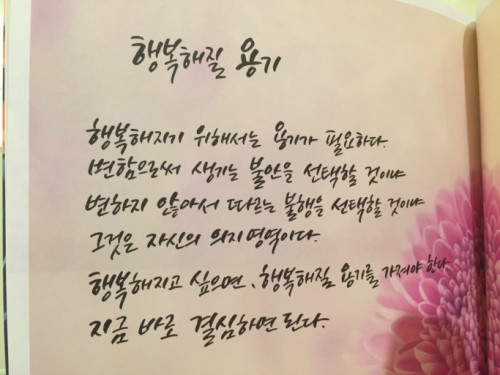 행복해질 용기
행복해지기 위해서는 용기가 필요하다.
변함으로써 생기는 불안을 선택할 것이냐
변하지 않아서 따르는 불행을 선택할 것이냐
그것은 자신의 의지영역이다.
행복해지고 싶으면, 행복해질 용기를 가져야 한다
지금 바로 결심하면 된다.